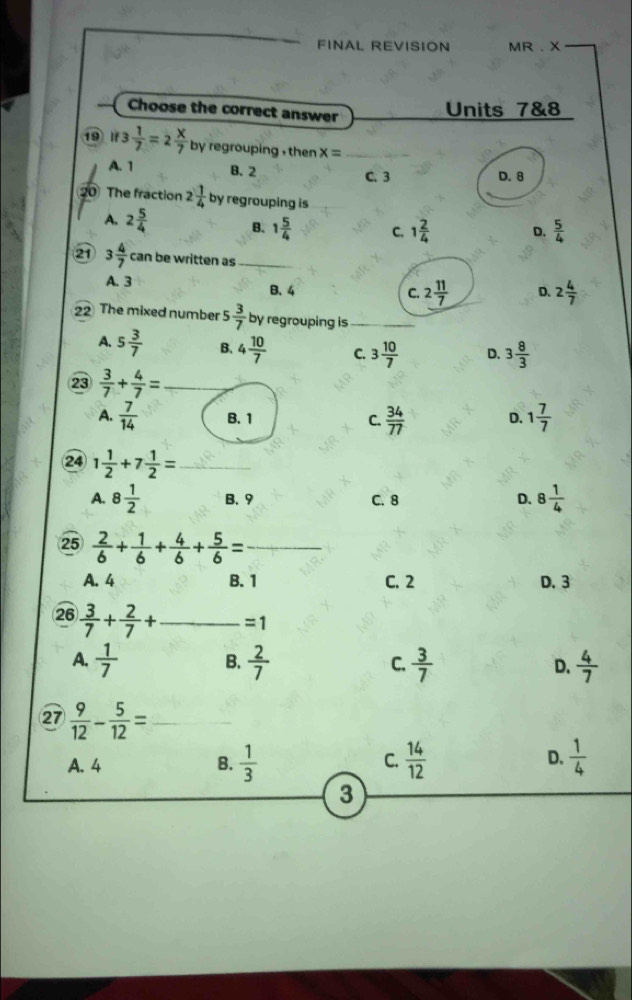 FINAL REVISION MR . X
Choose the correct answer Units 7&8
19 If 3 1/7 = 2 X/7 by regrouping , then X = ______
A. 1 B. 2 C. 3 D. 8
20 The fraction 2 1/4 by regrouping is ______
A. 2 5/4 B. 1 5/4 C. 1 2/4 D. 5/4
21 3 4/7 can be written as ______
A. 3 B. 4 C. 2 11/7 D. 2 4/7
22 The mixed number 5 3/7 by regrouping is ______
A. 5 3/7 B. 4 10/7 C. 3 10/7 D. 3 8/3
23 3/7 + 4/7 = ______
A. 7/14 B. 1 C. 34/77 D. 1 7/7
24 1 1/2 + 7 1/2 = ______
A. 8 1/2 B. 9 C. 8 D. 8 1/4
25 2/6 + 1/6 + 4/6 + 5/6 = ______
A. 4 B. 1 C. 2 D. 3
26 3/7 + 2/7 + ______ = 1
A. 1/7 B. 2/7 C. 3/7 D. 4/7
27 9/12 - 5/12 = ______
A. 4 B. 1/3 C. 14/12 D. 1/4
3